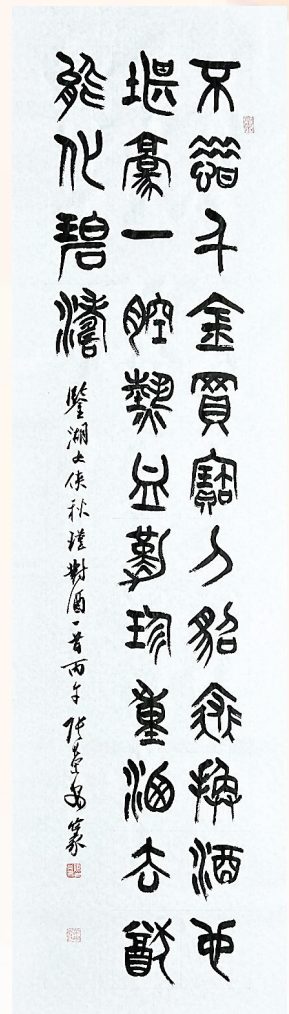 不惜千金買寶刀貂裘換酒也
堪豪一腔熱血勤珍重灑去猶
能化碧濤
鑒湖女俠秋瑾對酒一首丙午張篆